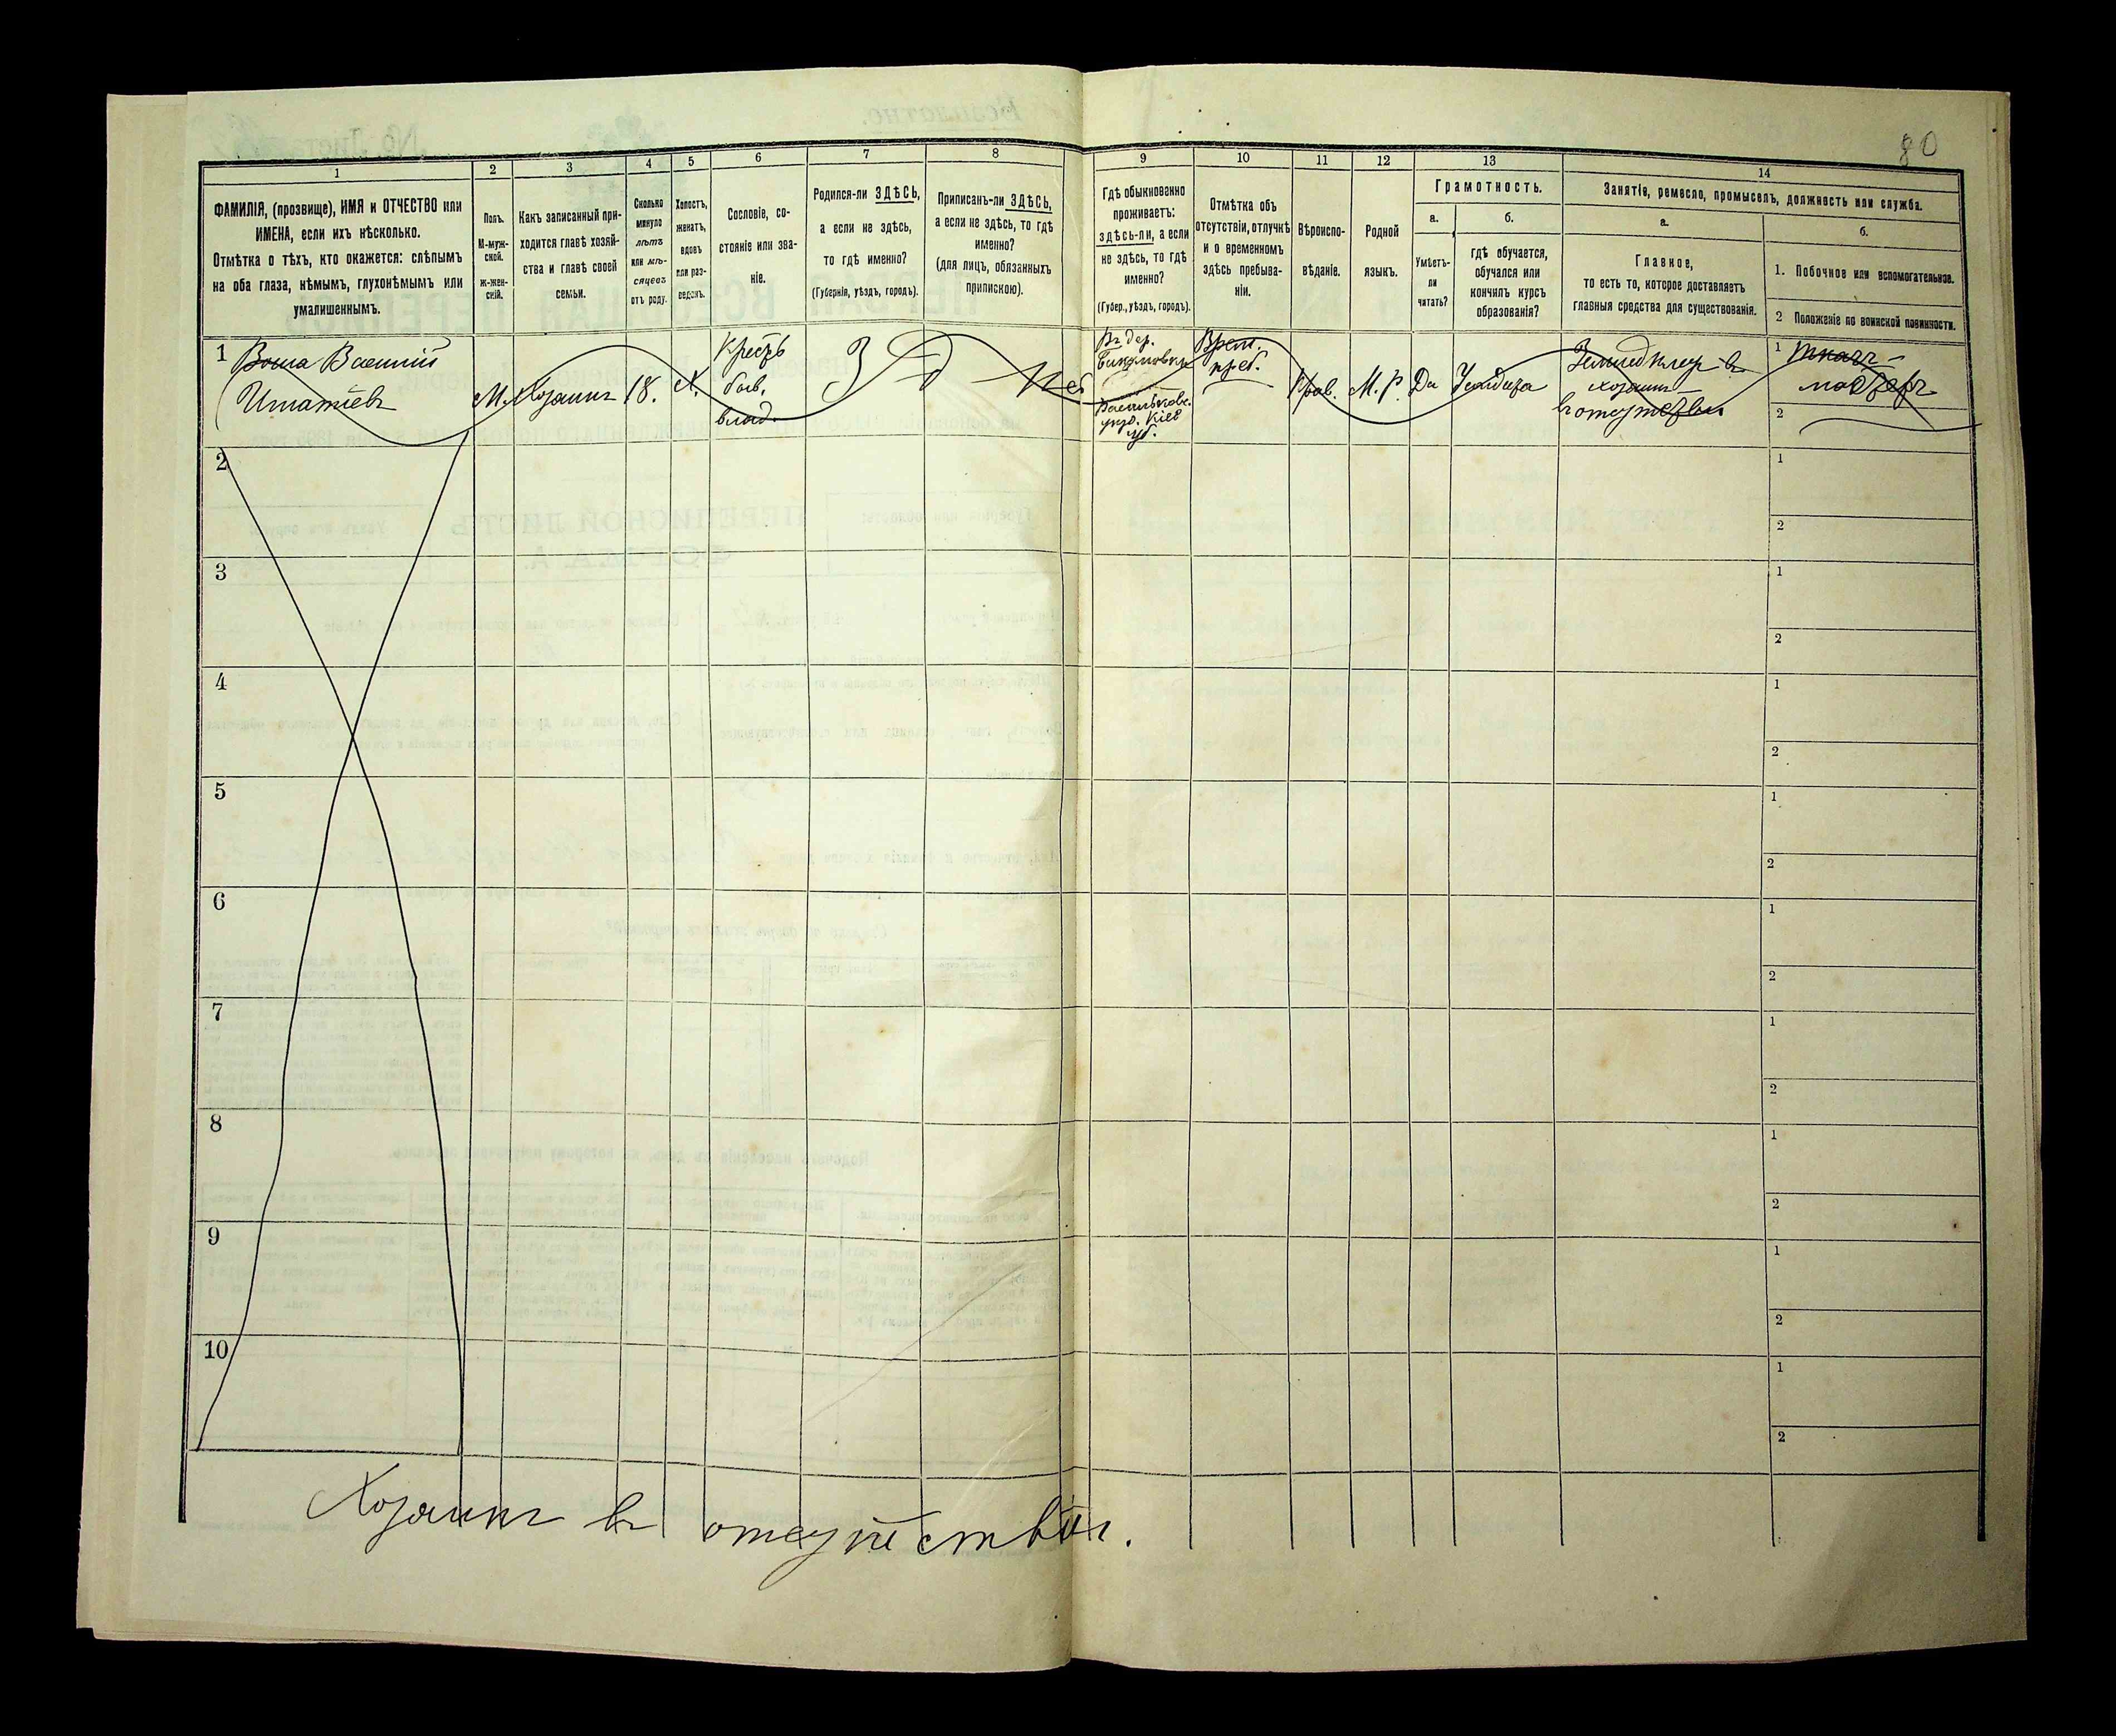 80
1
ФАМИЛІЯ, (прозвище), ИМЯ и ОТЧЕСТВО или
ИМЕНА, если ихъ нѣсколько.
Отмѣтка о тѣхъ, кто окажется: слѣпымъ
на оба глаза, нѣмымъ, глухонѣмымъ или
умалишеннымъ.
2
Полъ.
М-муж-
ской.
Ж-жен-
скій.
3
Какъ записанный при-
ходится главѣ хозяй-
ства и главѣ своей
семьи.
4
Сколько
минуло
лѣтъ
или мѣ-
сяцевъ
отъ роду.
5
Холостъ,
женатъ,
вдовъ
или раз-
веденъ.
6
Сословіе, со-
стояніе или зва-
ніе.
7
Родился-ли ЗДѢСЬ,
а если не здѣсь,
то гдѣ именно?
(Губернія, уѣздъ, городъ).
8
Приписанъ-ли ЗДѢСЬ,
а если не здѣсь, то гдѣ
именно?
(для лицъ, обязанныхъ
припискою).
9
Гдѣ обыкновенно
проживаетъ:
здѣсь-ли, а если
не здѣсь, то гдѣ
именно?
(Губер., уѣздъ, городъ).
10
Отмѣтка объ
отсутствіи, отлучкѣ
и о временномъ
здѣсь пребыва-
ніи.
11
Вѣроиспо-
вѣданіе.
12
Родной
языкъ.
13
Грамотность.
а.
Умѣетъ-
ли
читать?
б.
гдѣ обучается,
обучался или
кончилъ курсъ
образованія?
14
Занятіе, ремесло, промыселъ, должность или служба.
а.
Главное,
то есть то, которое доставляетъ
главныя средства для существованія.
б.
1. Побочное или вспомогательное.
2 Положеніе по воинской повинности.
1
Василій
Игнатіевъ
М.
Хозяинъ
18.
Х.
Крестъ
быв.
влад.
З
Д
Въ дер.
Васильков.
уѣз. Кіев
губ.
Врем.
преб.
Прав.
М. Р.
Да
хозяинъ
в отсутствіи
1
2
2
1
2
3
1
2
4
1
2
5
1
2
6
1
2
7
1
2
8
1
2
9
1
2
10
1
2
Хозяинъ въ отсутствіи.